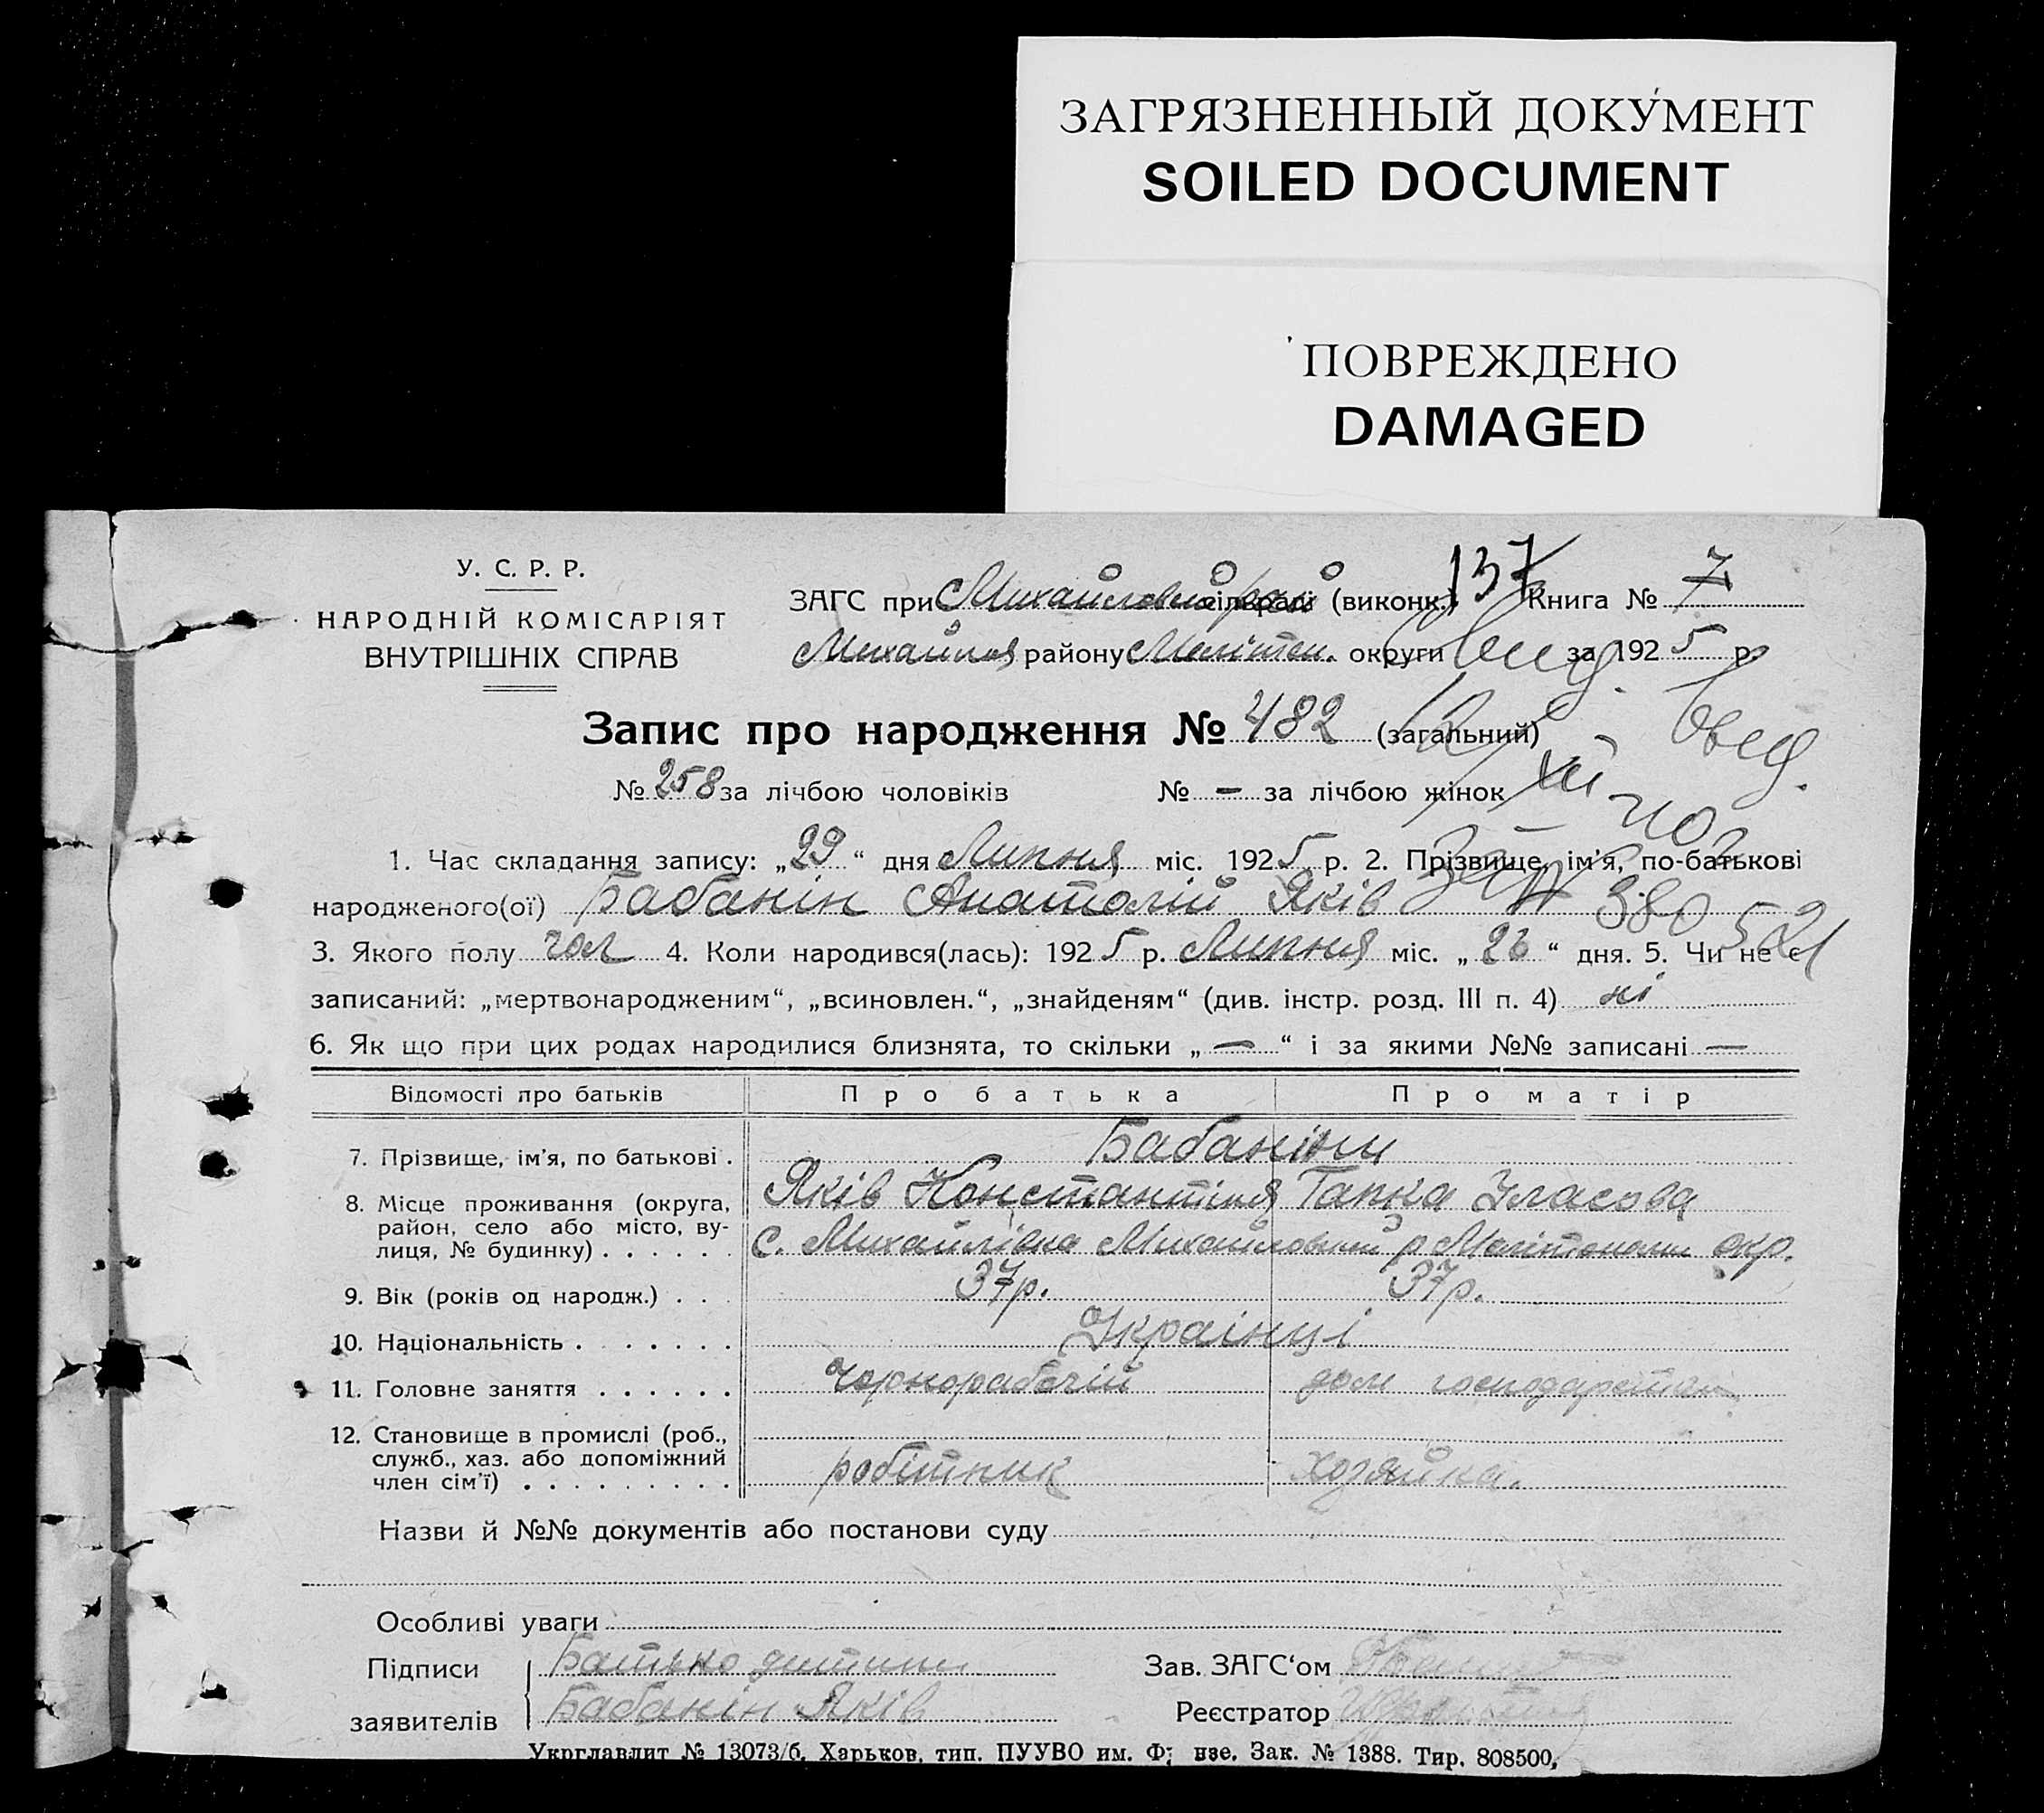 ЗАГРЯЗНЕННЫЙ ДОКУМЕНТ
SOILED DOCUMENT
ПОВРЕЖДЕНО
DAMAGED
У. С. Р. Р.
НАРОДНІЙ КОМІСАРІЯТ
ВНУТРІШНІХ СПРАВ
ЗАГС при сільраді (виконк.) 137 Книга № 7
Михайлов району Меліտոп. округи за 1925 р.
Запис про народження № 482 (загальний)
№ 258 за лічбою чоловіків № — за лічбою жінок
1. Час складання запису: „29“ дня Липня міс. 1925 р. 2. Прізвище, ім'я, по-батькові
народженого(ої) Бабанін Анатолій Яків
3. Якого полу чол 4. Коли народився(лась): 1925 р. Липня міс. „26“ дня. 5. Чи не є
записаний: „мертвонародженим“, „всиновлен.“, „знайденям“ (див. інстр. розд. III п. 4) ні
6. Як що при цих родах народилися близнята, то скільки „—“ і за якими №№ записані —
Відомості про батьків Про батька Про матір
7. Прізвище, ім'я, по батькові . Бабаніни
Яків Константінов Гапка Уласова
8. Місце проживання (округа, район, село або місто, вулиця, № будинку) . . . . . . С. Михайлівка Михайловський р Мелітопольськ окр.
9. Вік (років од народж.) . . . 37р. 37р.
10. Національність . . . . . . . Українці
11. Головне заняття . . . . . . чорнорабочій дом господарства
12. Становище в промислі (роб.,
служб., хаз. або допоміжний
член сім'ї) . . . . . . . . . робітник хозяйка.
Назви й №№ документів або постанови суду
Особливі уваги
Підписи Батько дитини Зав. ЗАГС'ом
заявителів Бабанін Яків Реєстратор
Укрглавлит № 13073/б. Харьков, тип. ПУУВО им. Ф. нзе. Зак. № 1388. Тир. 808500.